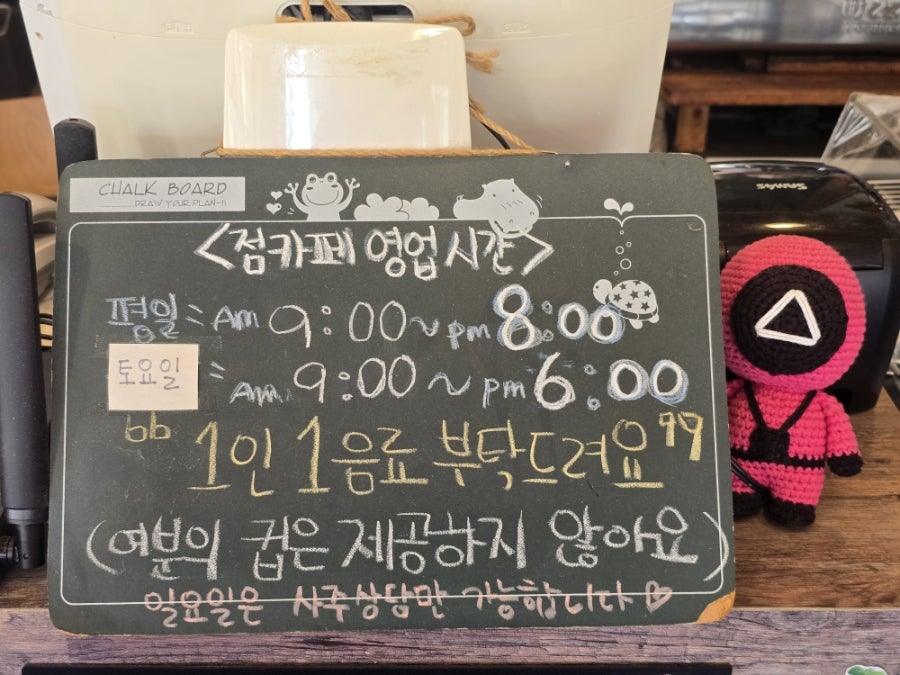 CHALK BOARD
DRAW YOUR PLAN-!!
<점카페 영업시간>
평일 = Am 9:00 ~ pm 8:00
토요일 = Am. 9:00 ~ pm 6:00
“1인 1음료 부탁드려요”
(여분의 컵은 제공하지 않아요)
일요일은 사주상담만 가능합니다 ♡